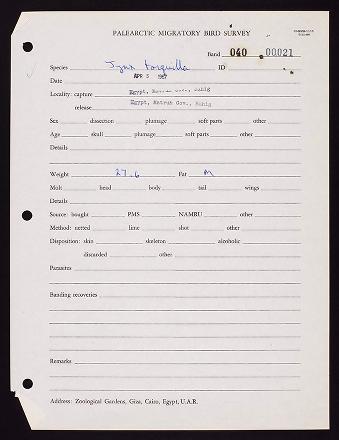 PALEARCTIC MIGRATORY BIRD SURVEY
Band 040 00021
Species Jynx torquilla ID
Date APR 5 1967
Locality: capture Egypt, Matruh Gov., Bahig
release Egypt, Matruh Gov., Bahig
Sex dissection plumage soft parts other
Age skull plumage soft parts other
Details
Weight 27.6 Fat M
Molt head body tail wings
Details
Source: bought PMS NAMRU other
Method: netted lime shot other
Disposition: skin skeleton alcoholic
discarded other
Parasites
Banding recoveries
Remarks
Address: Zoological Gardens, Giza, Cairo, Egypt, U.A.R.